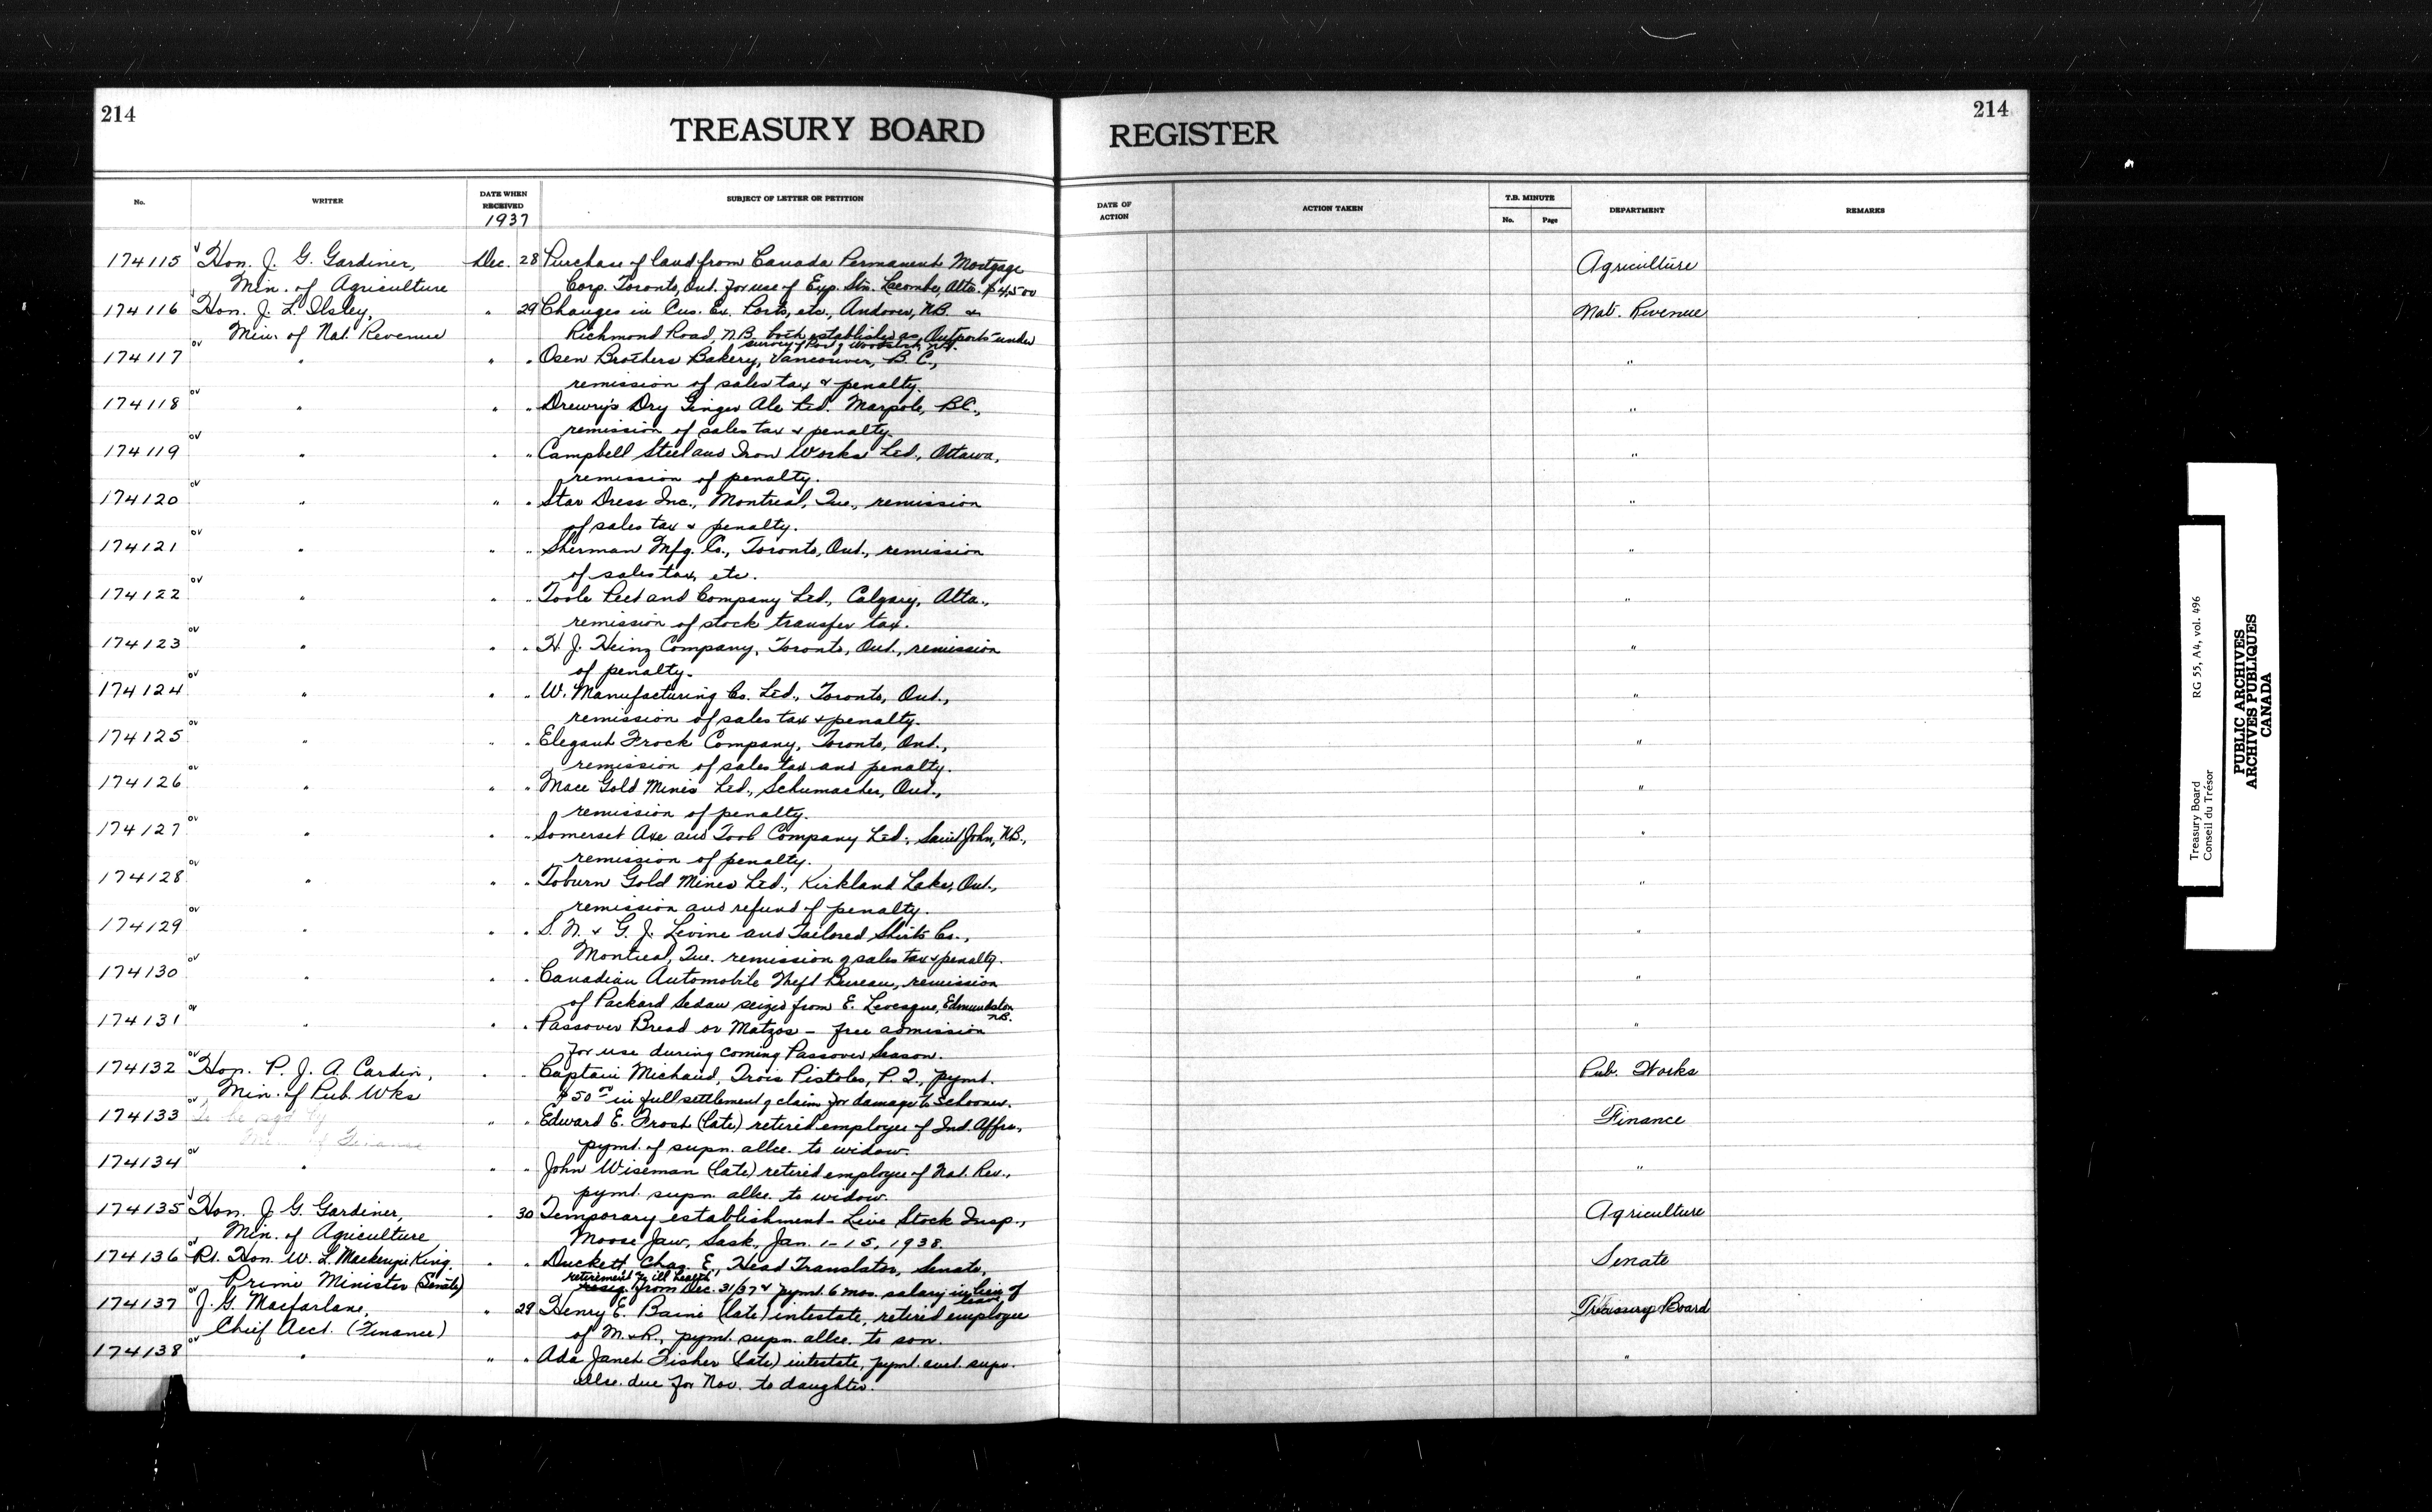 214
TREASURY BOARD REGISTER
214
No. WRITER DATE WHEN RECEIVED SUBJECT OF LETTER OR PETITION DATE OF ACTION ACTION TAKEN T.B. MINUTE No. Page DEPARTMENT REMARKS
1937
174115 Hon. J. G. Gardiner, Dec. 28 Purchase of land from Canada Permanent Mortgage Agriculture
Min. of Agriculture Corp. Toronto, Ont. for use of Exp. Stn. Lacombe, Alta. $4500
174116 Hon. J. L. Ilsley, " 29 Changes in Cus. Ex. Ports, etc., Andover, N.B. & Nat. Revenue
Min. of Nat. Revenue Richmond Road, N.B. both established as Outports under
survey of Port of Woodstock, N.B.
174117 ov " " " Osen Brothers Bakery, Vancouver, B.C., "
remission of sales tax & penalty.
174118 ov " " " Drewry's Dry Ginger Ale Ltd. Marpole, B.C., "
remission of sales tax & penalty.
174119 ov " " " Campbell Steel and Iron Works Ltd., Ottawa, "
remission of penalty.
174120 ov " " " Star Dress Inc., Montreal, Que., remission "
of sales tax & penalty.
174121 ov " " " Sherman Mfg. Co., Toronto, Ont., remission "
of sales tax, etc.
174122 ov " " " Toole Peet and Company Ltd., Calgary, Alta., "
remission of stock transfer tax.
174123 ov " " " H. J. Heinz Company, Toronto, Ont., remission "
of penalty.
174124 ov " " " W. Manufacturing Co. Ltd., Toronto, Ont., "
remission of sales tax & penalty.
174125 ov " " " Elegant Frock Company, Toronto, Ont., "
remission of sales tax and penalty.
174126 ov " " " Mace Gold Mines Ltd., Schumacher, Ont., "
remission of penalty.
174127 ov " " " Somerset Axe and Tool Company Ltd., Saint John, N.B., "
remission of penalty.
174128 ov " " " Toburn Gold Mines Ltd., Kirkland Lake, Ont., "
remission and refund of penalty.
174129 ov " " " S. N. & G. J. Levine and Tailored Shirts Co., "
Montreal, Que. remission of sales tax & penalty.
174130 ov " " " Canadian Automobile Theft Bureau, remission "
of Packard Sedan seized from E. Levesque, Edmundston
N.B.
174131 ov " " " Passover Bread or Matzos - free admission "
for use during coming Passover Season.
174132 ov Hon. P. J. A. Cardin, " " Captain Michaud, Trois Pistoles, P.Q., pymt. Pub. Works
Min. of Pub. Wks $50 in full settlement of claim for damage to schooner.
174133 ov To be sgd by " " Edward E. Frost (late) retired employee of Ind. Affrs., Finance
Min. of Finance pymt. of supn. allce. to widow.
174134 ov " " " John Wiseman (late) retired employee of Nat. Rev., "
pymt. supn. allce. to widow.
174135 Hon. J. G. Gardiner, " 30 Temporary establishment - Live Stock Insp., Agriculture
Min. of Agriculture Moose Jaw, Sask., Jan. 1-15, 1938.
174136 ov Rt. Hon. W. L. Mackenzie King, " " Duckett Chas. E., Head Translator, Senate, Senate
retirement by ill health
Prime Minister (Senate) resig. from Dec. 31/37 & pymt. 6 mos. salary in lieu of
leave
174137 ov J. G. Macfarlane, " 29 Henry E. Baine (late) intestate, retired employee Treasury Board
Chief Acct. (Finance) of M. & R., pymt. supn. allce. to son.
174138 ov " " " Ada Janet Fisher (late) intestate, pymt. acct. supn. "
allce. due for Nov. to daughter.
Treasury Board RG 55, A4, vol. 496
Conseil du Trésor
PUBLIC ARCHIVES
ARCHIVES PUBLIQUES
CANADA